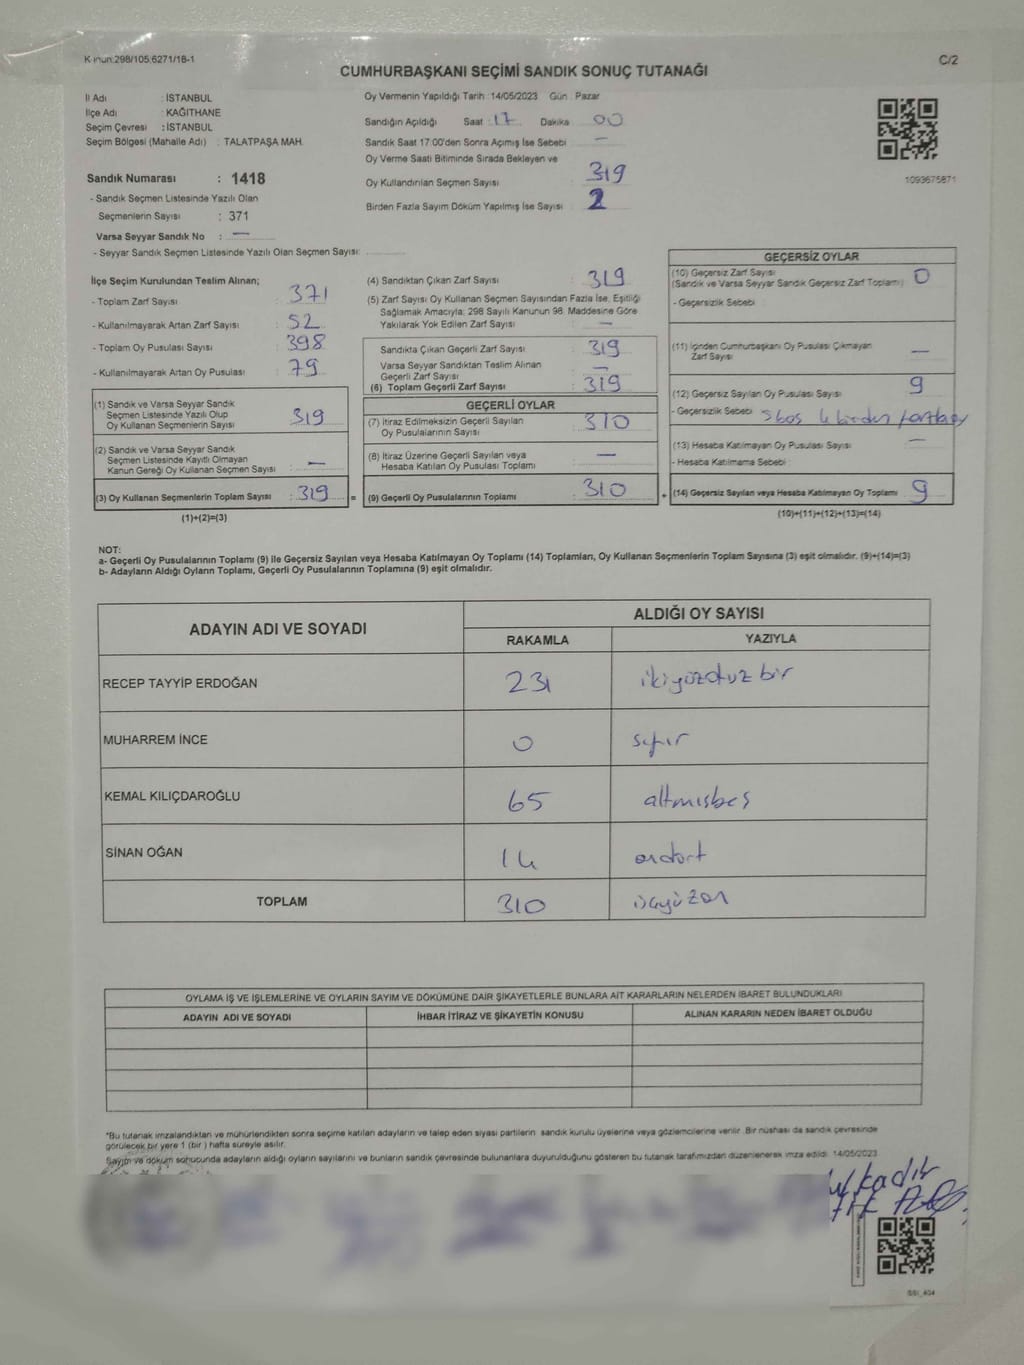 Kanun:298/105,6271/18-1
C/2
CUMHURBAŞKANI SEÇİMİ SANDIK SONUÇ TUTANAĞI
İl Adı : İSTANBUL
İlçe Adı : KAĞITHANE
Seçim Çevresi : İSTANBUL
Seçim Bölgesi (Mahalle Adı) : TALATPAŞA MAH.
Sandık Numarası : 1418
- Sandık Seçmen Listesinde Yazılı Olan
Seçmenlerin Sayısı : 371
Varsa Seyyar Sandık No : —
- Seyyar Sandık Seçmen Listesinde Yazılı Olan Seçmen Sayısı:
Oy Vermenin Yapıldığı Tarih :14/05/2023 Gün : Pazar
Sandığın Açıldığı Saat : 17 Dakika 00
Sandık Saat 17:00'den Sonra Açımış İse Sebebi : —
Oy Verme Saati Bitiminde Sırada Bekleyen ve
Oy Kullandırılan Seçmen Sayısı : 319
Birden Fazla Sayım Döküm Yapılmış İse Sayısı : 2
1093675871
İlçe Seçim Kurulundan Teslim Alınan;
- Toplam Zarf Sayısı : 371
- Kullanılmayarak Artan Zarf Sayısı : 52
- Toplam Oy Pusulası Sayısı : 398
- Kullanılmayarak Artan Oy Pusulası : 79
(1) Sandık ve Varsa Seyyar Sandık
Seçmen Listesinde Yazılı Olup
Oy Kullanan Seçmenlerin Sayısı : 319
(2) Sandık ve Varsa Seyyar Sandık
Seçmen Listesinde Kayıtlı Olmayan
Kanun Gereği Oy Kullanan Seçmen Sayısı : —
(3) Oy Kullanan Seçmenlerin Toplam Sayısı : 319 =
(1)+(2)=(3)
(4) Sandıktan Çıkan Zarf Sayısı : 319
(5) Zarf Sayısı Oy Kullanan Seçmen Sayısından Fazla İse, Eşitliği
Sağlamak Amacıyla; 298 Sayılı Kanunun 98. Maddesine Göre
Yakılarak Yok Edilen Zarf Sayısı : —
Sandıkta Çıkan Geçerli Zarf Sayısı : 319
Varsa Seyyar Sandıktan Teslim Alınan
Geçerli Zarf Sayısı : —
(6) Toplam Geçerli Zarf Sayısı : 319
GEÇERLİ OYLAR
(7) İtiraz Edilmeksizin Geçerli Sayılan
Oy Pusulalarının Sayısı : 310
(8) İtiraz Üzerine Geçerli Sayılan veya
Hesaba Katılan Oy Pusulası Toplamı : —
(9) Geçerli Oy Pusulalarının Toplamı : 310 +
GEÇERSİZ OYLAR
(10) Geçersiz Zarf Sayısı
(Sandık ve Varsa Seyyar Sandık Geçersiz Zarf Toplamı) : 0
- Geçersizlik Sebebi
(11) İçinden Cumhurbaşkanı Oy Pusulası Çıkmayan
Zarf Sayısı : —
(12) Geçersiz Sayılan Oy Pusulası Sayısı : 9
- Geçersizlik Sebebi 5 boş 4 birden fazla oy
(13) Hesaba Katılmayan Oy Pusulası Sayısı : —
- Hesaba Katılmama Sebebi :
(14) Geçersiz Sayılan veya Hesaba Katılmayan Oy Toplamı : 9
(10)+(11)+(12)+(13)=(14)
NOT:
a- Geçerli Oy Pusulalarının Toplamı (9) ile Geçersiz Sayılan veya Hesaba Katılmayan Oy Toplamı (14) Toplamları, Oy Kullanan Seçmenlerin Toplam Sayısına (3) eşit olmalıdır. (9)+(14)=(3)
b- Adayların Aldığı Oyların Toplamı, Geçerli Oy Pusulalarının Toplamına (9) eşit olmalıdır.
ADAYIN ADI VE SOYADI ALDIĞI OY SAYISI
RAKAMLA YAZIYLA
RECEP TAYYİP ERDOĞAN 231 ikiyüzotuzbir
MUHARREM İNCE 0 sıfır
KEMAL KILIÇDAROĞLU 65 altmışbeş
SİNAN OĞAN 14 ondört
TOPLAM 310 üçyüzon
OYLAMA İŞ VE İŞLEMLERİNE VE OYLARIN SAYIM VE DÖKÜMÜNE DAİR ŞİKAYETLERLE BUNLARA AİT KARARLARIN NELERDEN İBARET BULUNDUKLARI
ADAYIN ADI VE SOYADI İHBAR İTİRAZ VE ŞİKAYETİN KONUSU ALINAN KARARIN NEDEN İBARET OLDUĞU
*Bu tutanak imzalandıktan ve mühürlendikten sonra seçime katılan adayların ve talep eden siyasi partilerin sandık kurulu üyelerine veya gözlemcilerine verilir. Bir nüshası da sandık çevresinde
görülecek bir yere 1 (bir ) hafta süreyle asılır.
Sayım ve döküm sonucunda adayların aldığı oyların sayılarını ve bunların sandık çevresinde bulunanlara duyurulduğunu gösteren bu tutanak tarafımızdan düzenlenerek imza edildi. 14/05/2023